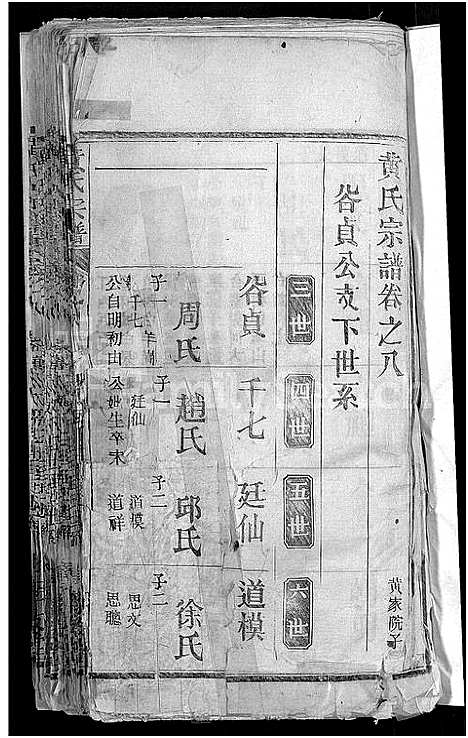 黄氏宗譜卷之八
黄家院子
谷貞公支下世系
三世
四世
五世
六世
谷貞
千七
廷仙
道模
周氏
趙氏
邱氏
徐氏
子一
千七
公自明初山
子一
廷仙
公妣生卒未
子二
道模
道祥
子二
思文
思聰
氏宗譜